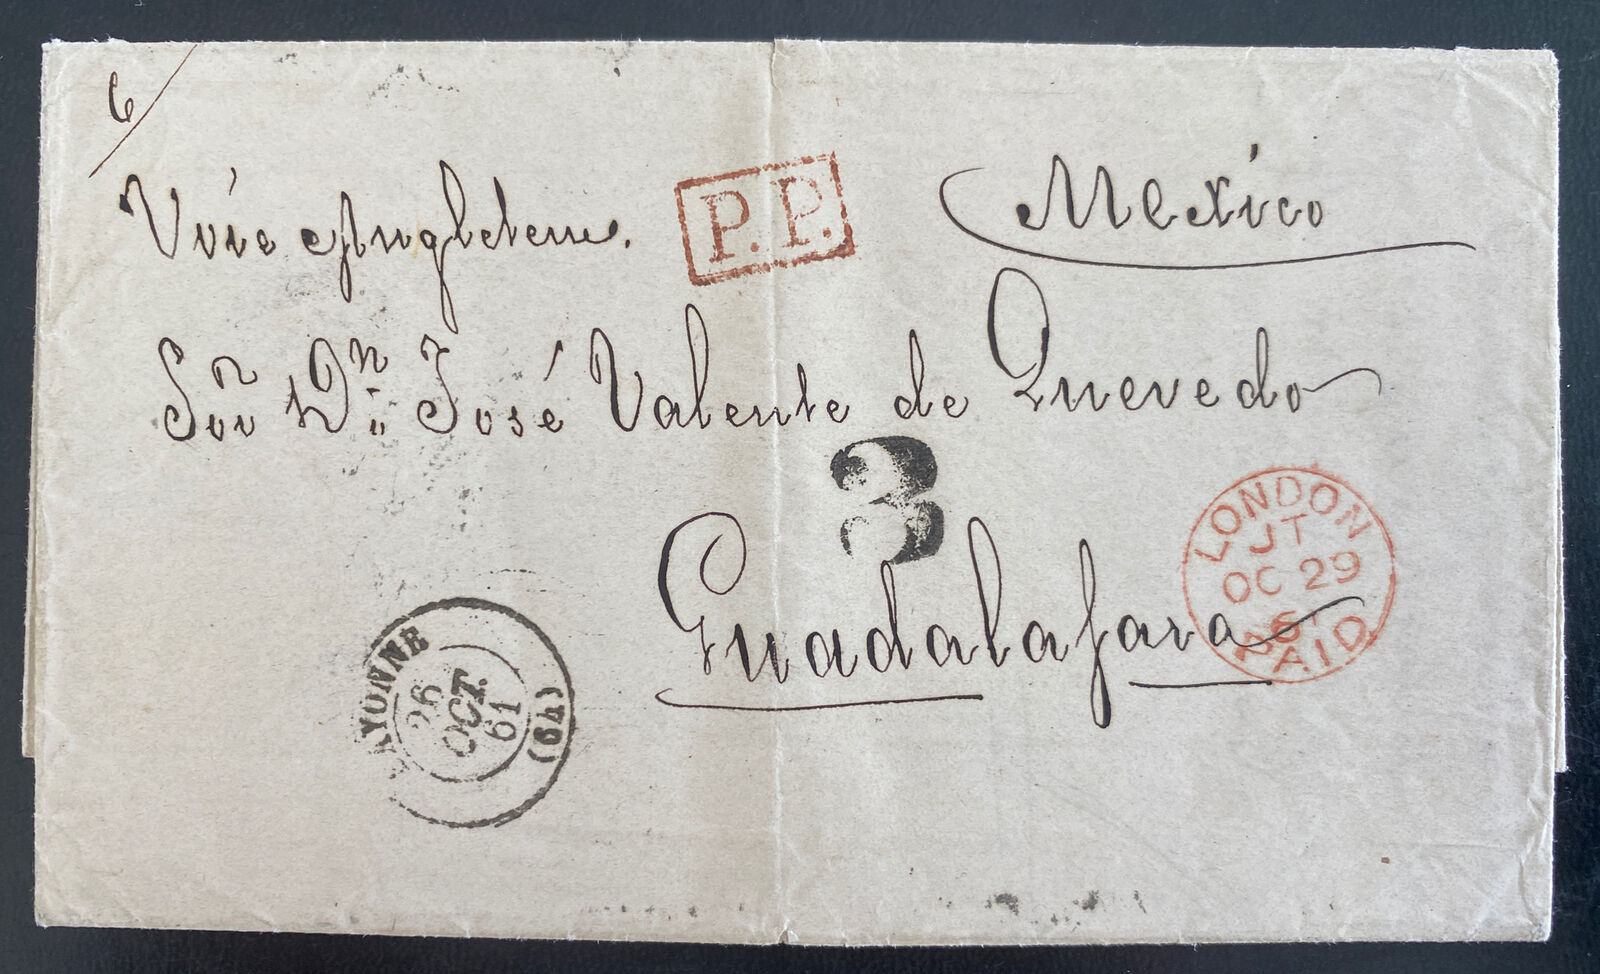 6
Voie Angleterre.
P.P.
México
Sor Dn José Valente de Quevedo
3
Guadalajara
LONDON
JT
OC 29
61
PAID
BAYONNE
26
OCT.
61
(64)